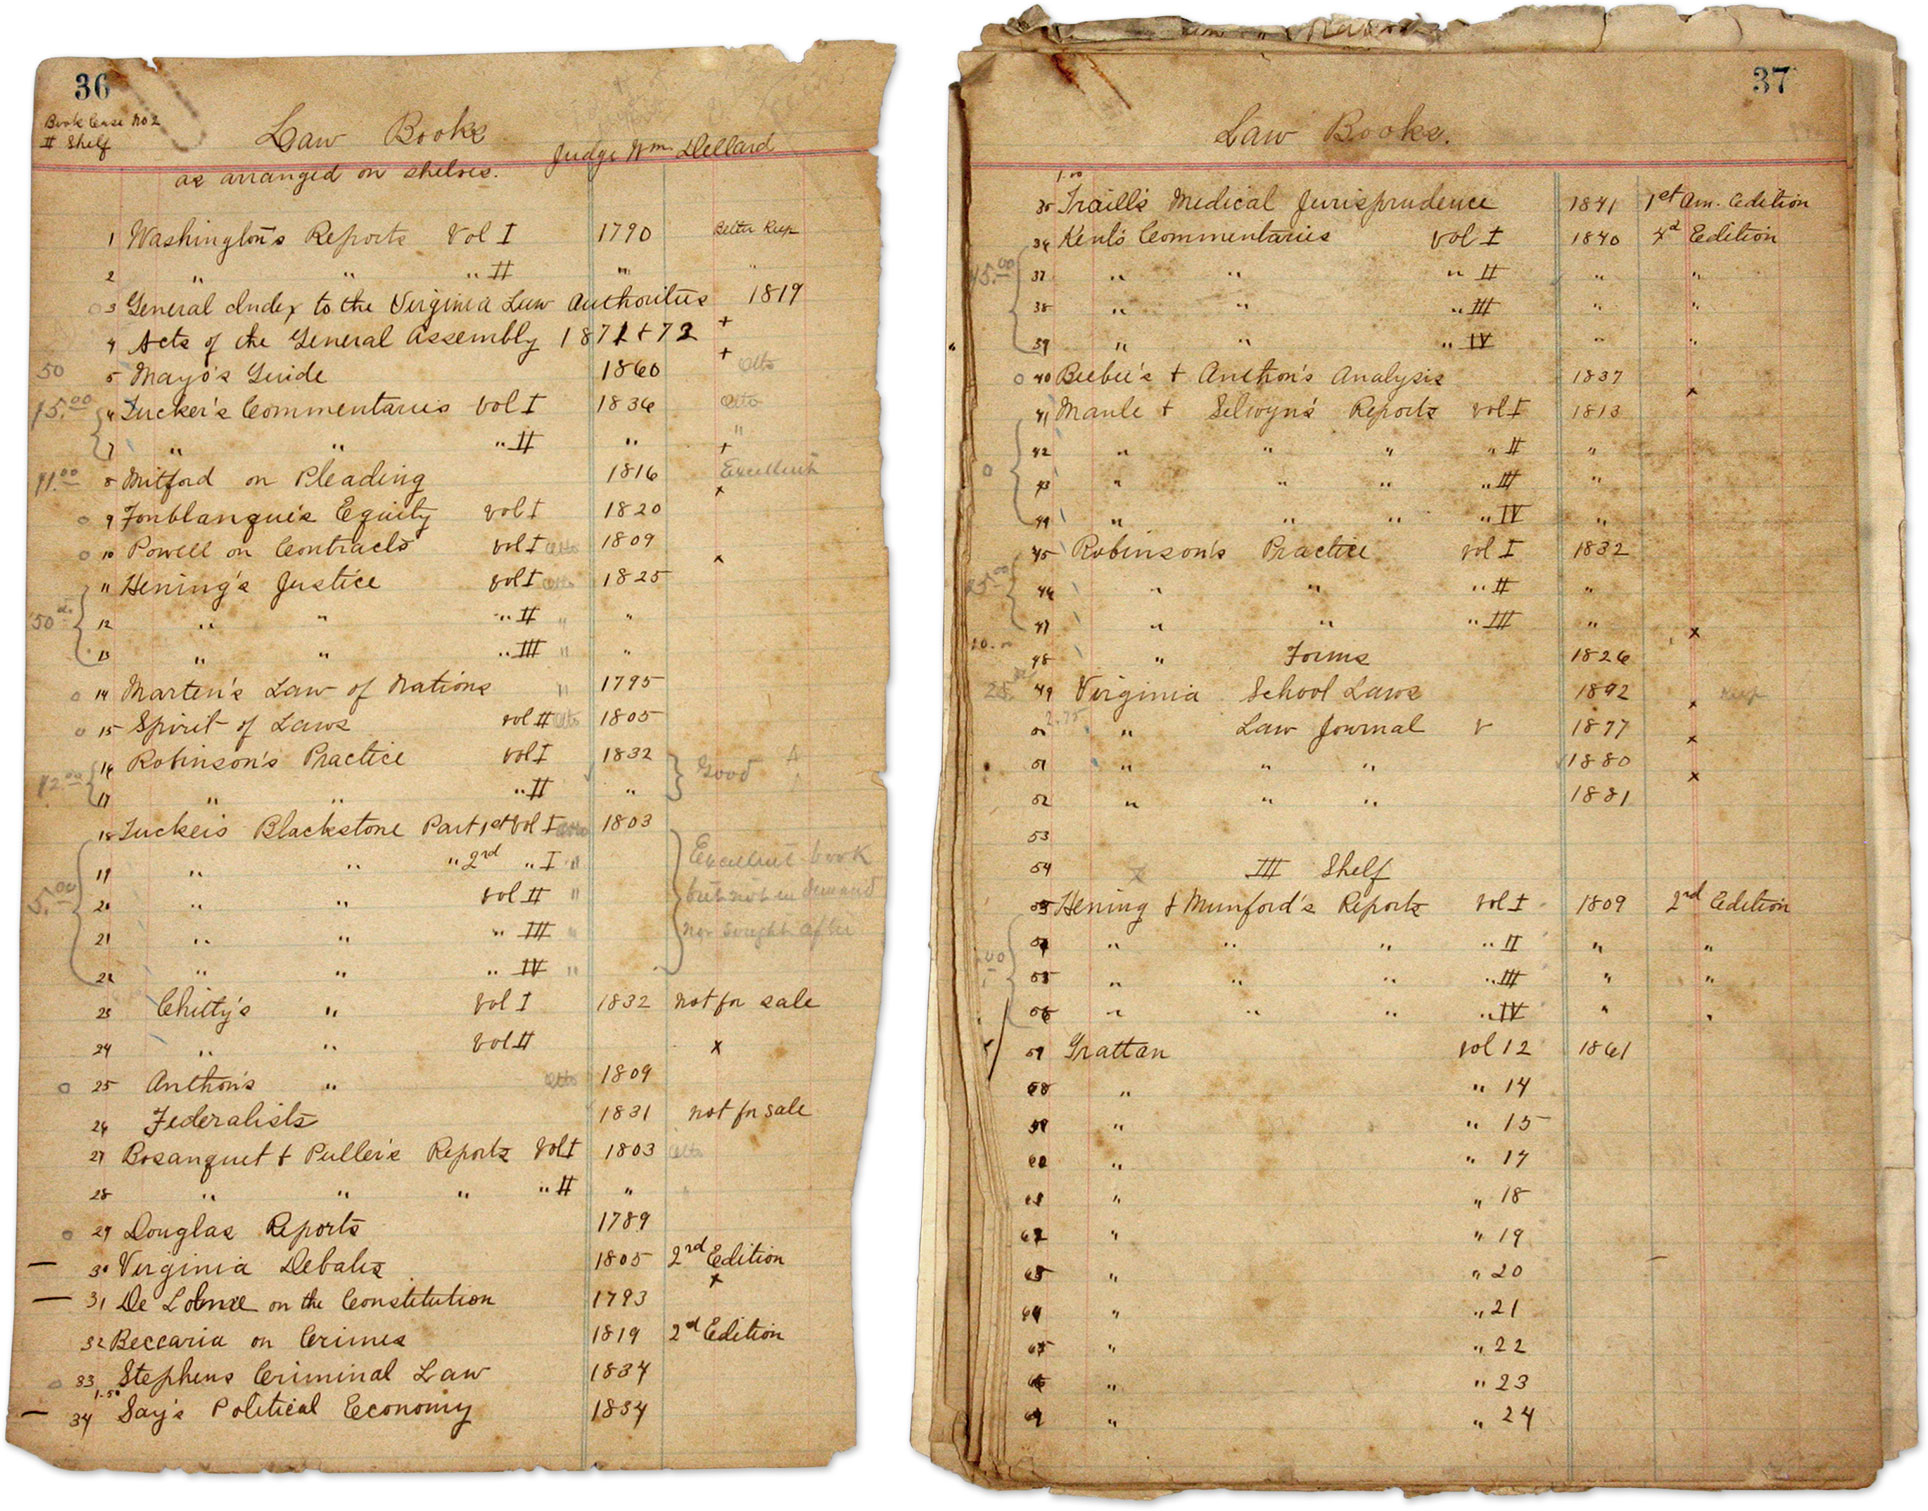 36
Book Case No 2
II Shelf
Law Books
Judge Wm. Dillard
as arranged on shelves.
1 Washington's Reports Vol I 1790 Better Keep
2 " " " II " "
3 General Index to the Virginia Law Authorities 1819
4 Acts of the General Assembly 1871 + 72 +
50 5 Mayo's Guide 1860 + Otto
15.00 6 Tucker's Commentaries Vol I 1836 Otto
7 " " " II " "
+
11.00 8 Mitford on Pleading 1816 Excellent
x
o 9 Fonblanque's Equity Vol I 1820
o 10 Powell on Contracts Vol I Otto 1809
x
11 Hening's Justice Vol I Otto 1825
50 12 " " " II " "
13 " " " III " "
o 14 Marten's Law of Nations " 1795
o 15 Spirit of Laws vol II Otto 1805
16 Robinson's Practice Vol I 1832 Good
12.00 17 " " " II "
18 Tucker's Blackstone Part 1st Vol I Otto 1803
19 " " " 2nd " I " Excellent book
5.00 20 " " Vol II " but not in demand
21 " " " III " nor sought after
22 " " " IV "
23 Chitty's " Vol I 1832 not for sale
24 " " Vol II x
o 25 Anthon's " Otto 1809
26 Federalists 1831 not for sale
27 Bosanquet + Puller's Reports Vol I 1803 Otto
28 " " " " II " "
o 29 Douglas Reports 1789
— 30 Virginia Debates 1805 2nd Edition
x
— 31 De Lolme on the Constitution 1793
32 Beccaria on Crimes 1819 2d Edition
o 33 Stephens Criminal Law 1834
1.50
— 34 Say's Political Economy 1834
37
Law Books.
1.00
35 Traill's Medical Jurisprudence 1841 1st Am. Edition
36 Kent's Commentaries Vol I 1840 4d Edition
15.00 37 " " " II " "
38 " " " III " "
39 " " " IV " "
o 40 Beebee's + Anthon's Analysis 1837
x
41 Maule + Selwyn's Reports vol I 1813
42 " " " " II "
o 43 " " " " III "
44 " " " " IV "
45 Robinson's Practice vol I 1832
46 " " " II "
47 " " " III "
x
48 " Forms 1826
49 Virginia School Laws 1892 Keep
x
2.75
50 " Law Journal V 1877
x
51 " " " 1880
x
52 " " " 1881
53
54 III Shelf
53 Hening + Munford's Reports vol I 1809 2nd Edition
54 " " " " II " "
55 " " " " III " "
56 " " " " IV " "
57 Grattan vol 12 1861
58 " " 14
59 " " 15
60 " " 17
61 " " 18
62 " " 19
63 " " 20
64 " " 21
65 " " 22
66 " " 23
67 " " 24